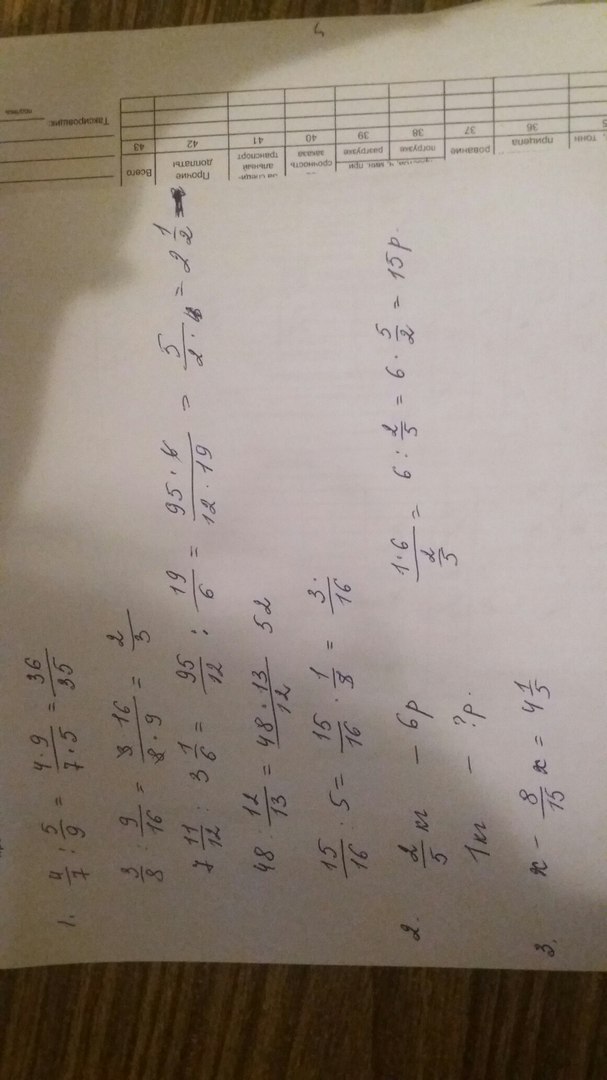 1. 4/7 : 5/9 = 4·9/7·5 = 36/35
3/8 : 9/16 = 3·16/8·9 = 2/3
7 11/12 : 3 1/6 = 95/12 : 19/6 = 95·6/12·19 = 5/2 = 2 1/2
48 : 12/13 = 48·13/12 52
15/16 : 5 = 15/16 · 1/3 = 3/16
2. 2/5 кг – 6р 1·6/(2/5) = 6 : 2/5 = 6 · 5/2 = 15р.
1 кг – ?р.
3. x – 8/15 x = 4 1/5
Таксировщик:
подпись
Всего
Прочие доплаты
альный транспорт
срочность заказа
разгрузке
погрузке
рование
прицепа
тонн
43 42 41 40 39 38 37 36